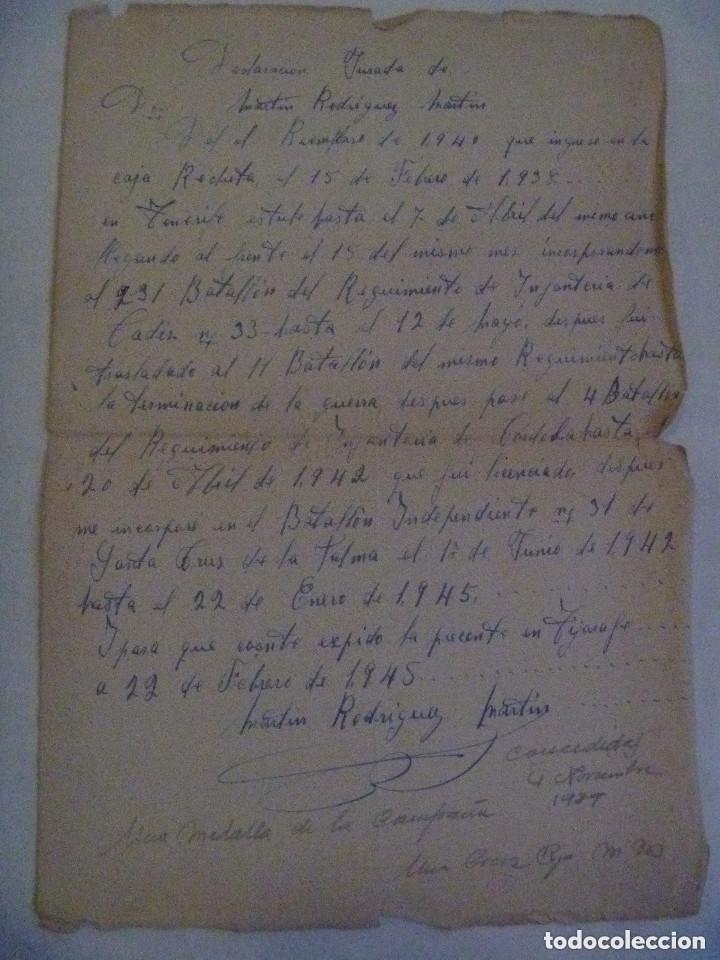 Declaracion Jurada de
Dn Martin Rodriguez Martin
Del el Reemplaso de 1.940 que ingrese en la
caja Recluta, el 15 de Febrero de 1.938
en Tenerife estube hasta el 7 de Abril del mismo ano
llegando al frente el 15 del mismo mes incorporandome
al 231 Batallón del Reguimiento de Infanteria de
Cadiz nº 33-hasta el 12 de Mayo, despues fui
trasladado al 11 Batallón del mismo Reguimiento hasta
la terminacion de la guerra, despues pase al 4 Batallon
del Reguimiento de Infanteria de Cordoba hasta el
20 de Abril de 1.942 que fui licenciado, despues
me incorpore en el Batallón Independiente nº 31 de
Santa Cruz de la Palma el 1º de Junio de 1.942
hasta el 22 de Enero de 1.945.
I para que conste expido la presente en Tijarafe
a 22 de Febrero de 1.945
Martin Rodriguez Martin
Concedidas
4 Noviembre
Una Medalla de la Campaña
Una Cruz Roja
todocoleccion
todocoleccion.net